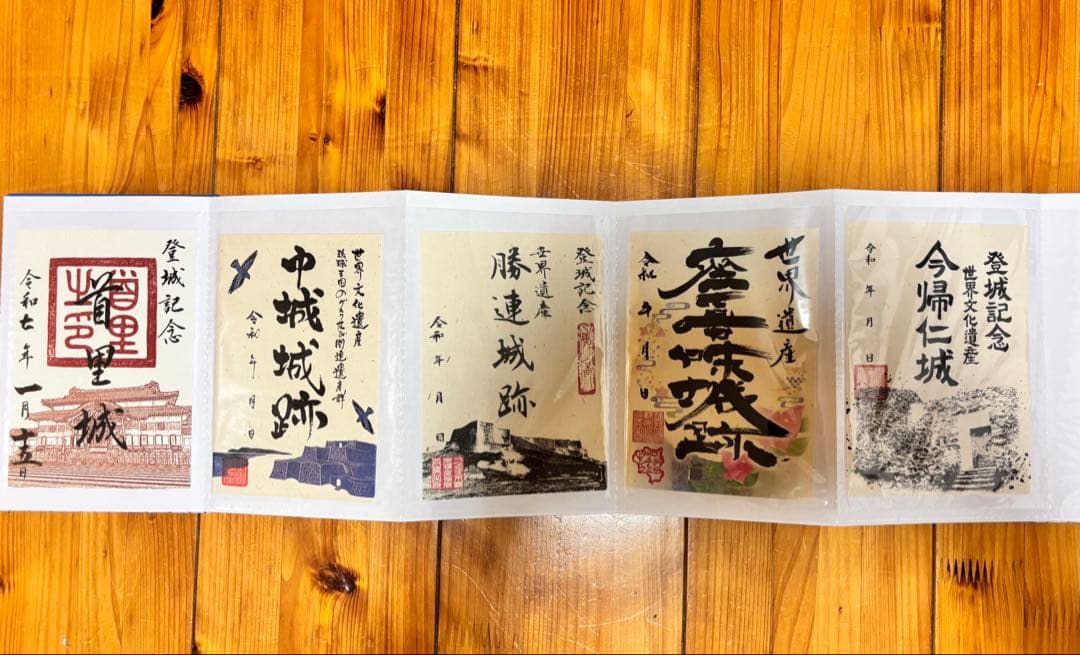 登城記念
首里城
令和七年一月十五日
世界文化遺産
琉球王国のグスク及び関連遺産群
中城城跡
令和 年 月 日
登城記念
世界遺産
勝連城跡
令和 年 月 日
世界遺産
座喜味城跡
令和 年 月 日
登城記念
世界文化遺産
今帰仁城
令和 年 月 日